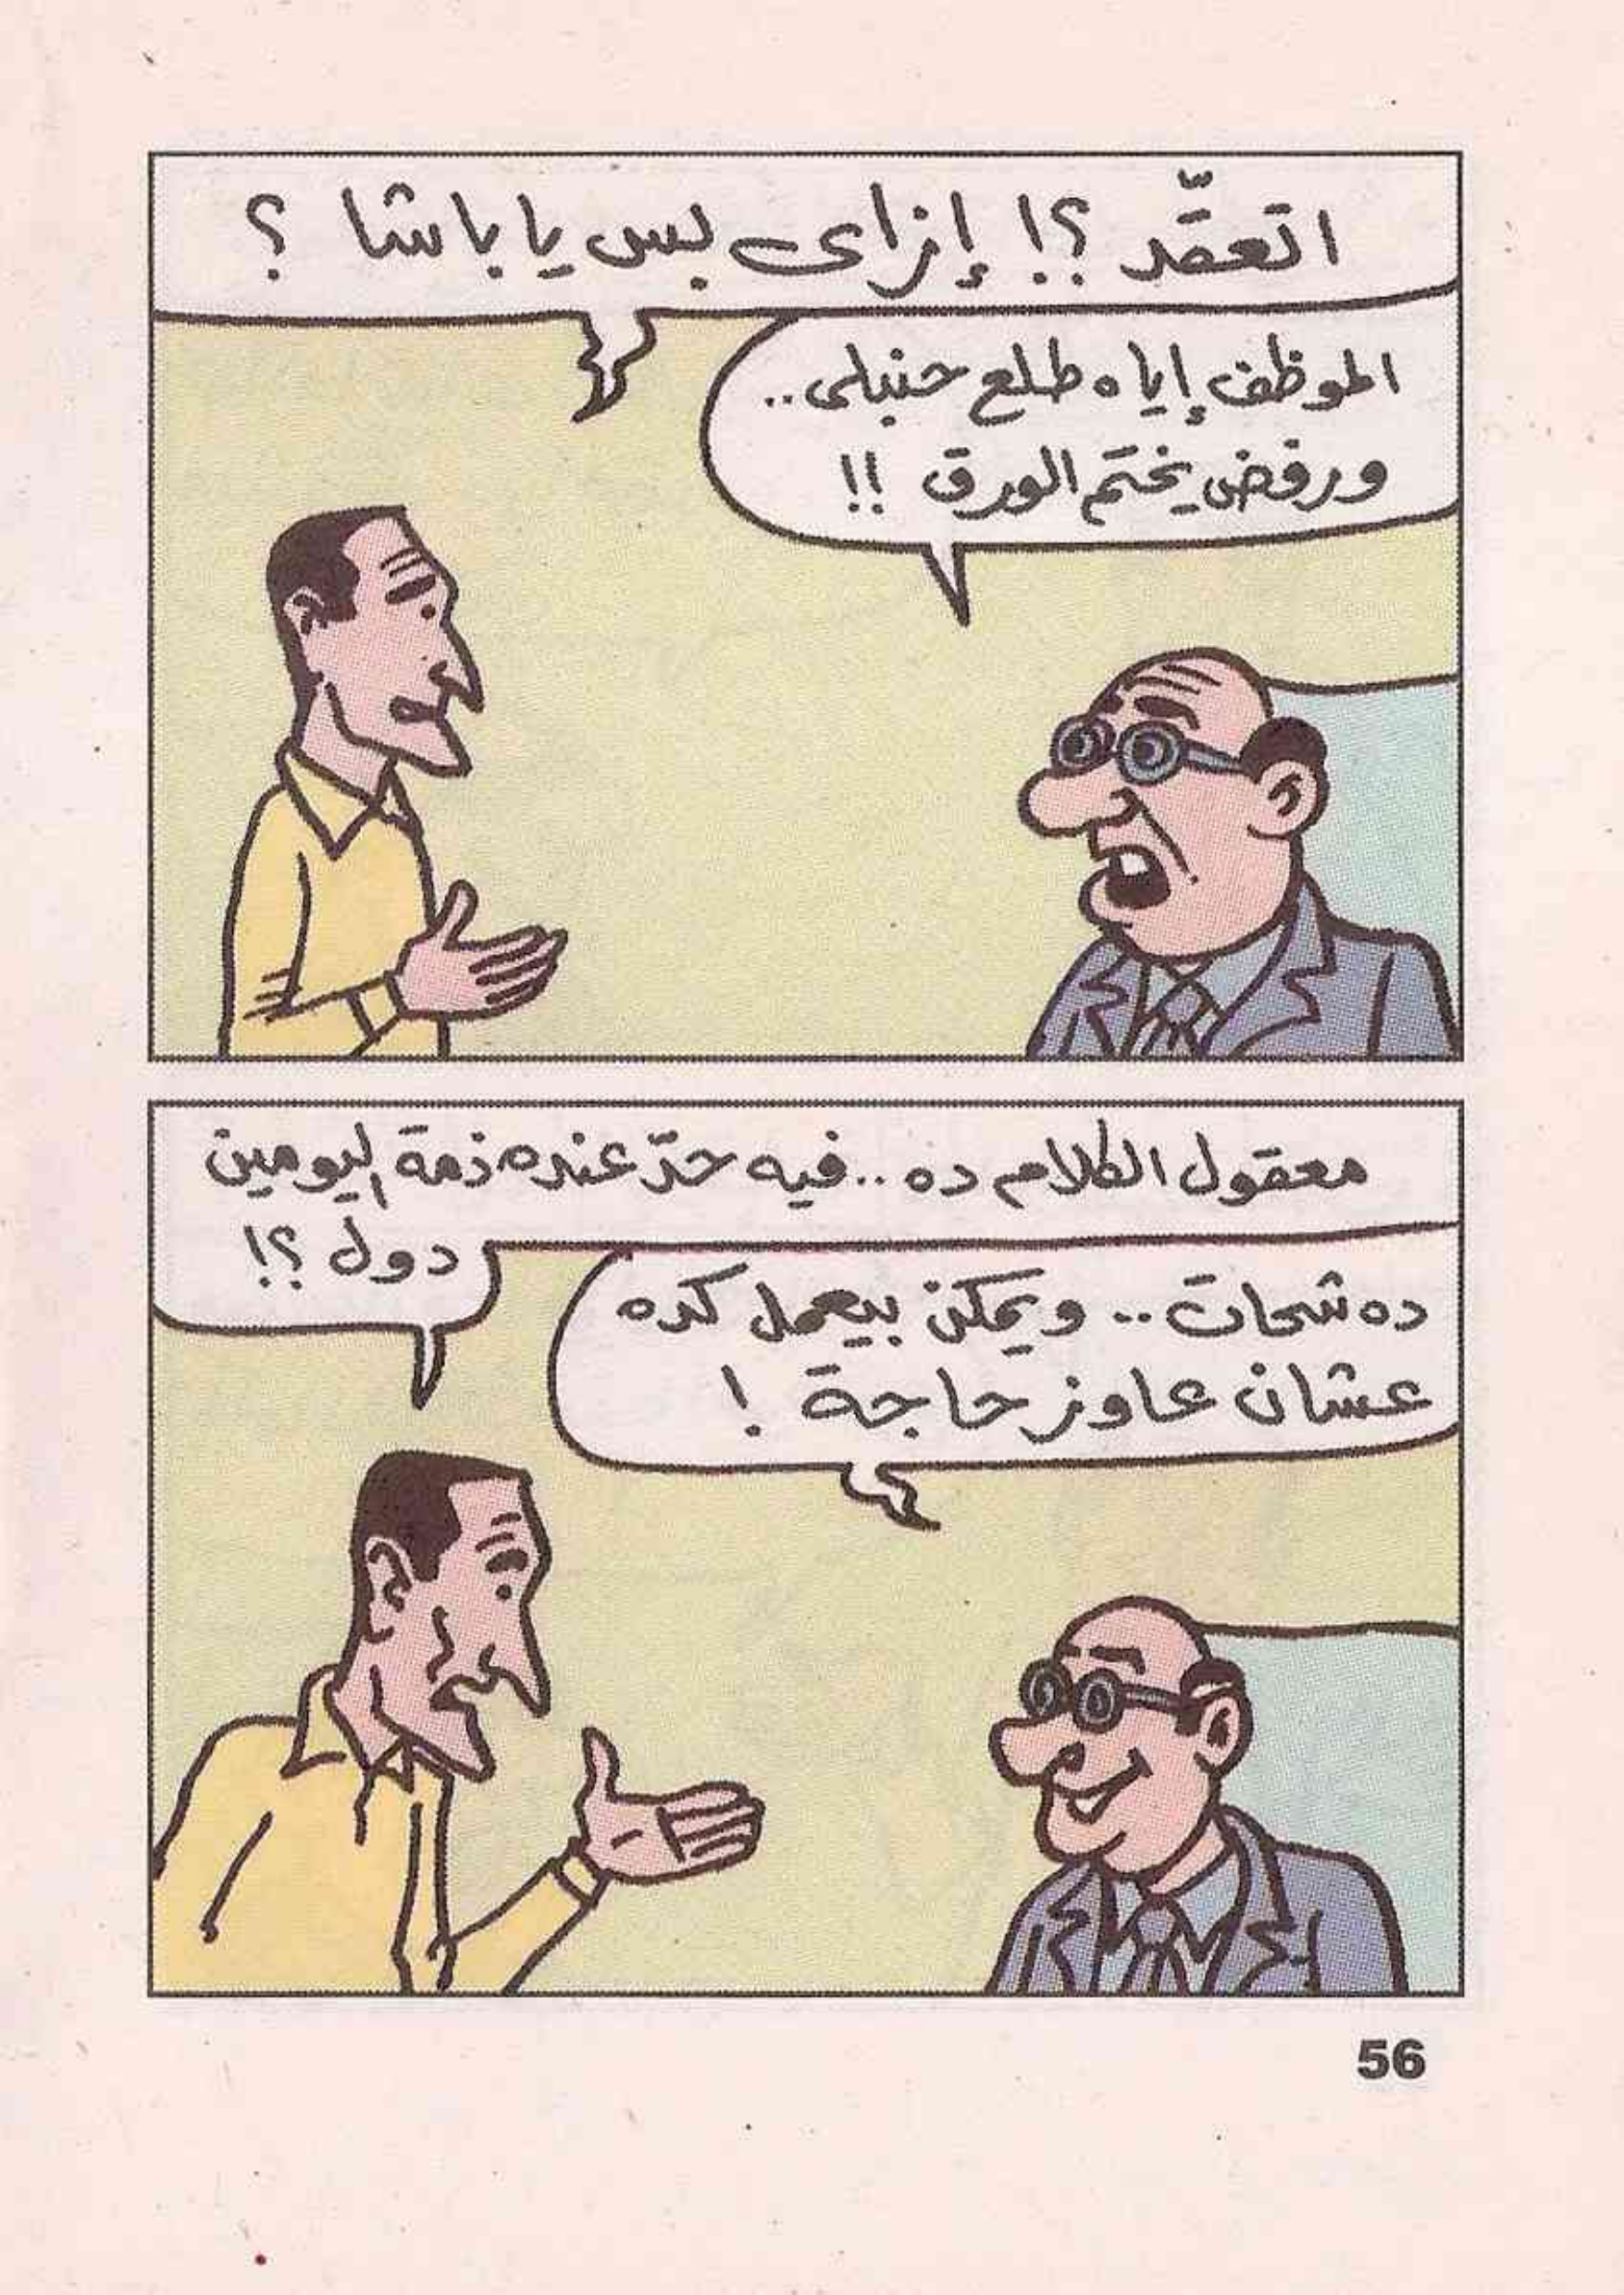 اتعقّد ؟! إزاى بس يا باشا ؟
الموظف إياه طلع حنبلى..
ورفض يختم الورق !!
معقول الكلام ده .. فيه حدّ عنده ذمة اليومين
دول ؟!
ده شحات .. ويمكن بيعمل كده
عشان عاوز حاجة !
56